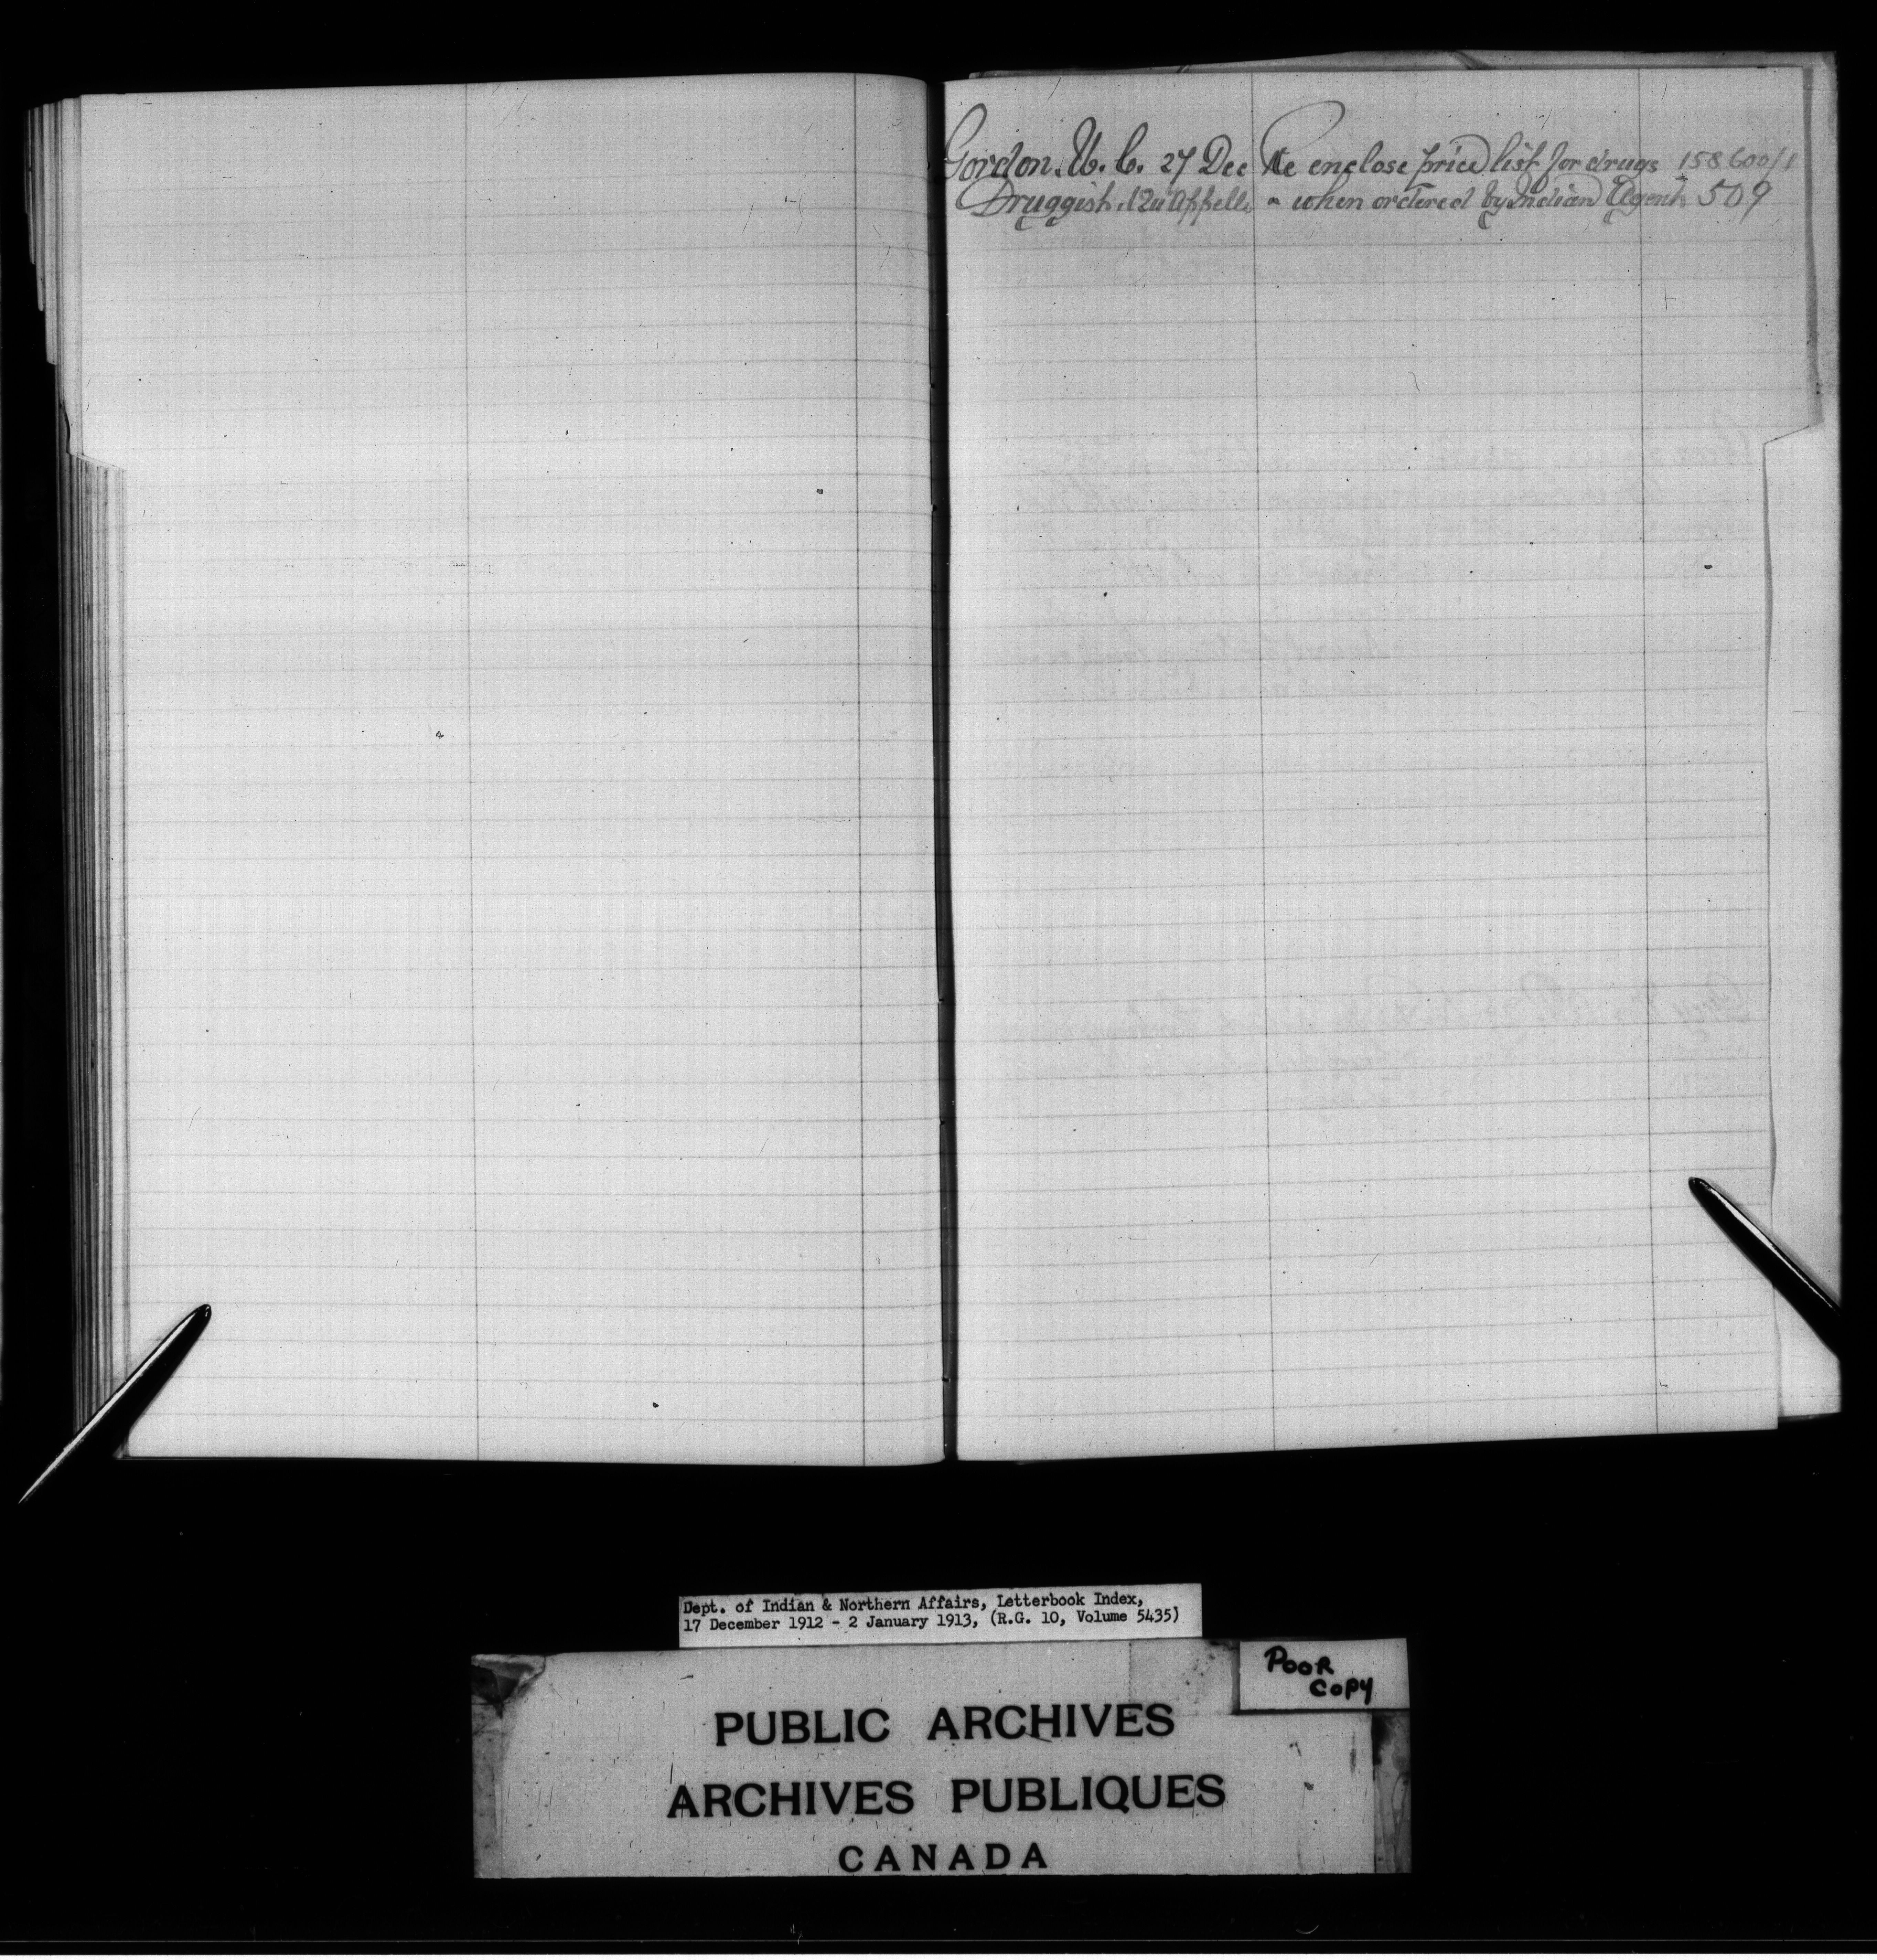 Gordon. W. C. 27 Dec Re enclose price list for drugs 158600/1
Druggist. Qu'Appelle when ordered by Indian Agent 509
Dept. of Indian & Northern Affairs, Letterbook Index,
17 December 1912 - 2 January 1913, (R.G. 10, Volume 5435)
POOR
COPY
PUBLIC ARCHIVES
ARCHIVES PUBLIQUES
CANADA